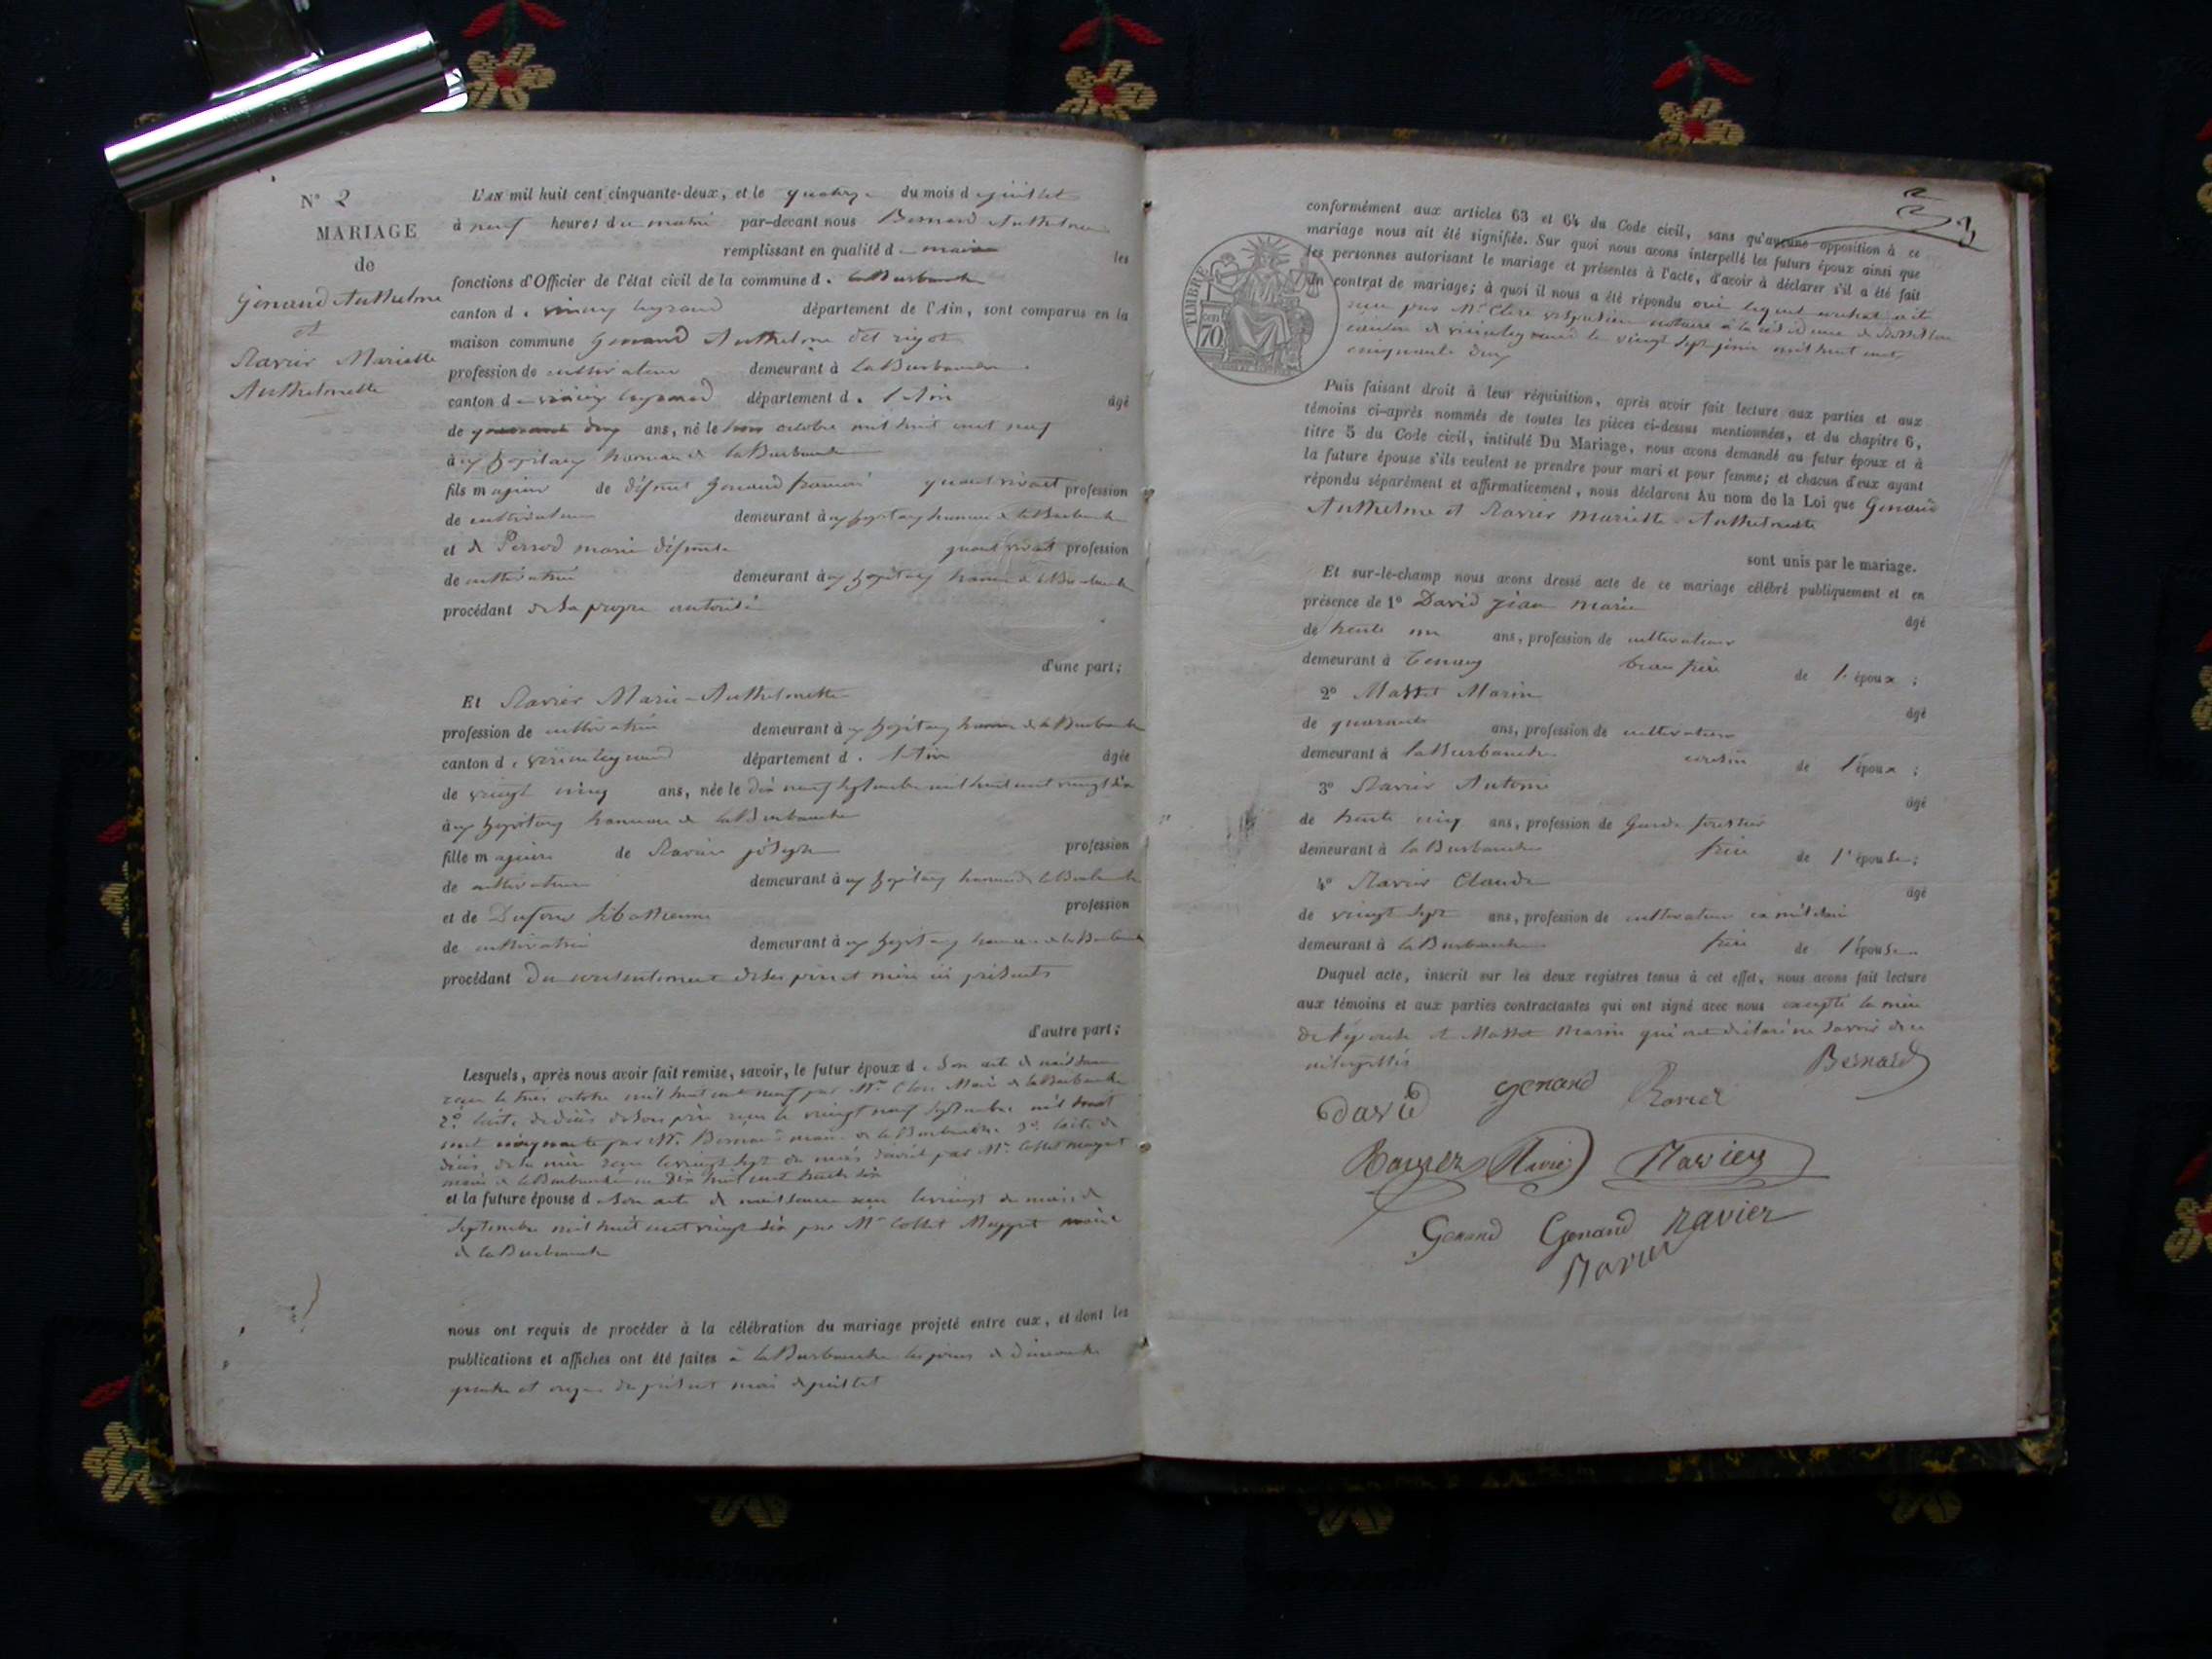 N° 2
MARIAGE
de
Genand Anthelme
et
Ravier Mariette
Anthelmette
L'AN mil huit cent cinquante-deux, et le quatorze du mois de juillet
à neuf heures du matin par-devant nous Bernard Anthelme
remplissant en qualité de maire les
fonctions d'Officier de l'état civil de la commune de laBurbanche
canton de virieu legrand département de l'Ain, sont comparus en la
maison commune Genand Anthelme dit rigot
profession de cultivateur demeurant à laBurbanche
canton de virieu legrand département de l'Ain âgé
de quarante deux ans, né le trois octobre mil huit cent neuf
à hameau de laBurbanche
fils majeur de défunt Genand francois quand vivait profession
de cultivateur demeurant à hameau de laBurbanche
et de Perrod marie défunte quand vivait profession
de cultivatrice demeurant à hameau de laBurbanche
procédant de sa propre autorité
d'une part;
Et Ravier Marie-Anthelmette
profession de cultivatrice demeurant à hameau de laBurbanche
canton de virieu legrand département de l'Ain âgée
de vingt cinq ans, née le dix neuf septembre mil huit cent vingt six
à hameau de laBurbanche
fille majeure de Ravier joseph profession
de cultivateur demeurant à hameau de laBurbanche
et de Dufour profession
de cultivatrice demeurant à hameau de laBurbanche
procédant du consentement de ses père et mère ici présents
d'autre part;
Lesquels, après nous avoir fait remise, savoir, le futur époux de son acte de naissance
reçu le trois octobre mil huit cent neuf par Mr Clerc Maire de laBurbanche
2° l'acte de décès de son père reçu le vingt neuf septembre mil huit
cent cinquante par Mr Bernard maire de laBurbanche 3° l'acte de
décès de sa mère reçu le vingt sept du mois d'avril par Mr Collet mayret
maire de laBurbanche an Dix huit cent trente six
et la future épouse de son acte de naissance reçu le vingt du mois de
septembre mil huit cent vingt six par Mr Collet Mayret maire
de laBurbanche
nous ont requis de procéder à la célébration du mariage projeté entre eux, et dont les
publications et affiches ont été faites à laBurbanche les jours de dimanche
quatre et onze du présent mois de juillet
3
TIMBRE
70
conformément aux articles 63 et 64 du Code civil, sans qu'aucune opposition à ce
mariage nous ait été signifiée. Sur quoi nous avons interpellé les futurs époux ainsi que
les personnes autorisant le mariage et présentes à l'acte, d'avoir à déclarer s'il a été fait
un contrat de mariage; à quoi il nous a été répondu oui lequel contrat a été
reçu par Mr Clerc notaire à la résidence de Rossillon
canton de virieu le vingt sept juin mil huit cent
cinquante deux
Puis faisant droit à leur réquisition, après avoir fait lecture aux parties et aux
témoins ci-après nommés de toutes les pièces ci-dessus mentionnées, et du chapitre 6,
titre 5 du Code civil, intitulé Du Mariage, nous avons demandé au futur époux et à
la future épouse s'ils veulent se prendre pour mari et pour femme; et chacun d'eux ayant
répondu séparément et affirmativement, nous déclarons Au nom de la Loi que Genand
Anthelme et Ravier Mariette-Anthelmette
sont unis par le mariage.
Et sur-le-champ nous avons dressé acte de ce mariage célébré publiquement et en
présence de 1° David jean marie âgé
de trente un ans, profession de cultivateur
demeurant à Tenay beau frère de l'époux;
2° Masset Marin âgé
de quarante ans, profession de cultivateur
demeurant à laBurbanche cousin de l'époux;
3° Ravier Antoine âgé
de trente cinq ans, profession de Garde forestier
demeurant à laBurbanche frère de l'épouse;
4° Ravier Claude âgé
de vingt sept ans, profession de cultivateur ex militaire
demeurant à laBurbanche frère de l'épouse
Duquel acte, inscrit sur les deux registres tenus à cet effet, nous avons fait lecture
aux témoins et aux parties contractantes qui ont signé avec nous excepté la mère
de l'épouse et Masset Marin qui ont déclaré ne savoir de ce
interpellés
Bernard
David Genand Ravier
Ravier Ravier Ravier
Genand Genand Ravier
Ravier